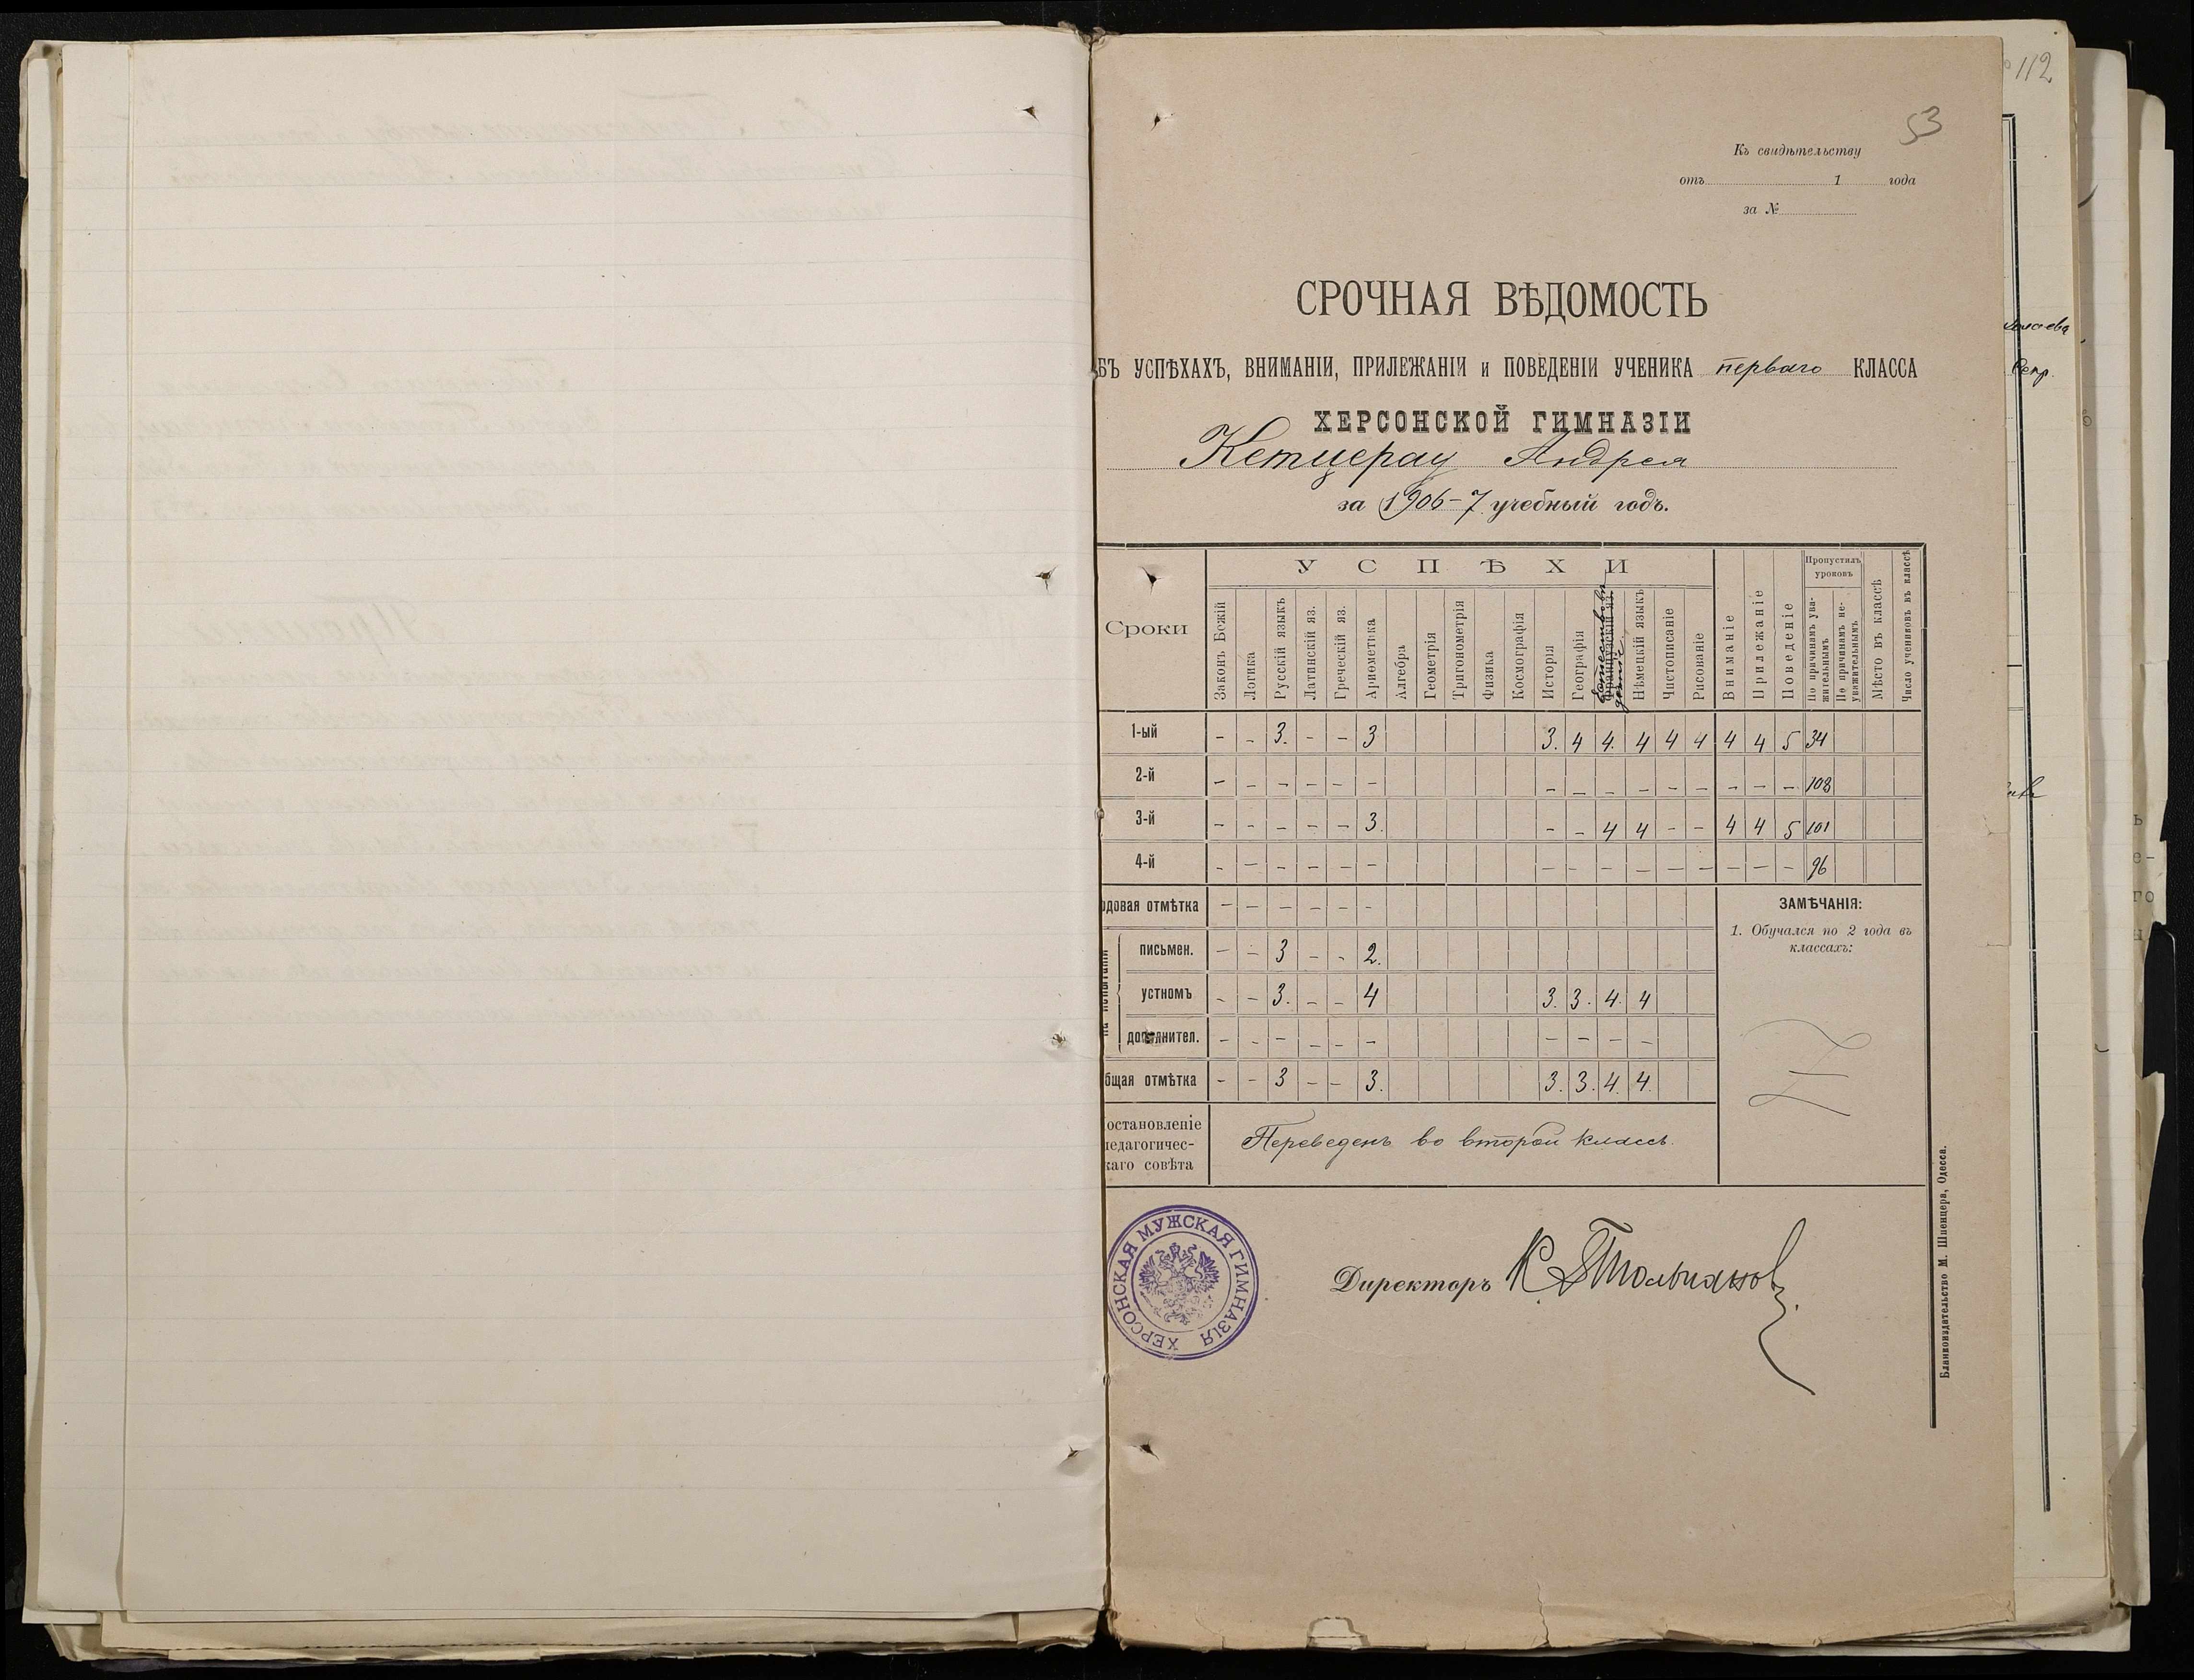 112
53
Къ свидѣтельству
отъ 1 года
за №
СРОЧНАЯ ВѢДОМОСТЬ
БЪ УСПѢХАХЪ, ВНИМАНІИ, ПРИЛЕЖАНІИ и ПОВЕДЕНІИ УЧЕНИКА перваго КЛАССА
ХЕРСОНСКОЙ ГИМНАЗІИ
Кетцерау Андрея
за 1906-7 учебный годъ.
Сроки
УСПѢХИ
Законъ Божій
Логика
Русскій языкъ
Латинскій яз.
Греческій яз.
Ариѳметика
Алгебра
Геометрія
Тригонометрія
Физика
Космографія
Исторія
Географія
Французскій яз.
Нѣмецкій языкъ
Чистописаніе
Рисованіе
Вниманіе
Прилежаніе
Поведеніе
Пропустилъ уроковъ
По причинамъ уважительнымъ
По причинамъ неуважительнымъ
Мѣсто въ классѣ
Число учениковъ въ классѣ
1-ый – – 3. – – 3 3. 4 4. 4 4 4 4 4 5 34
2-й – – – – – – – – – – – – – – – 108
3-й – – – – – 3. – – 4 4 – – 4 4 5 101
4-й – – – – – – – – – – – – – – – 96
одовая отмѣтка – – – – – –
письмен. – – 3 – – 2.
устномъ – – 3. – – 4 3. 3. 4. 4
дополнител. – – – – – – – – – –
бщая отмѣтка – – 3 – – 3. 3. 3. 4. 4.
ЗАМѢЧАНІЯ:
1. Обучался по 2 года въ
классахъ:
остановленіе
педагогичес-
каго совѣта
Переведенъ во второй классъ.
ХЕРСОНСКАЯ МУЖСКАЯ ГИМНАЗІЯ
Директоръ
Бланкоиздательство М. Шпенцера, Одесса.